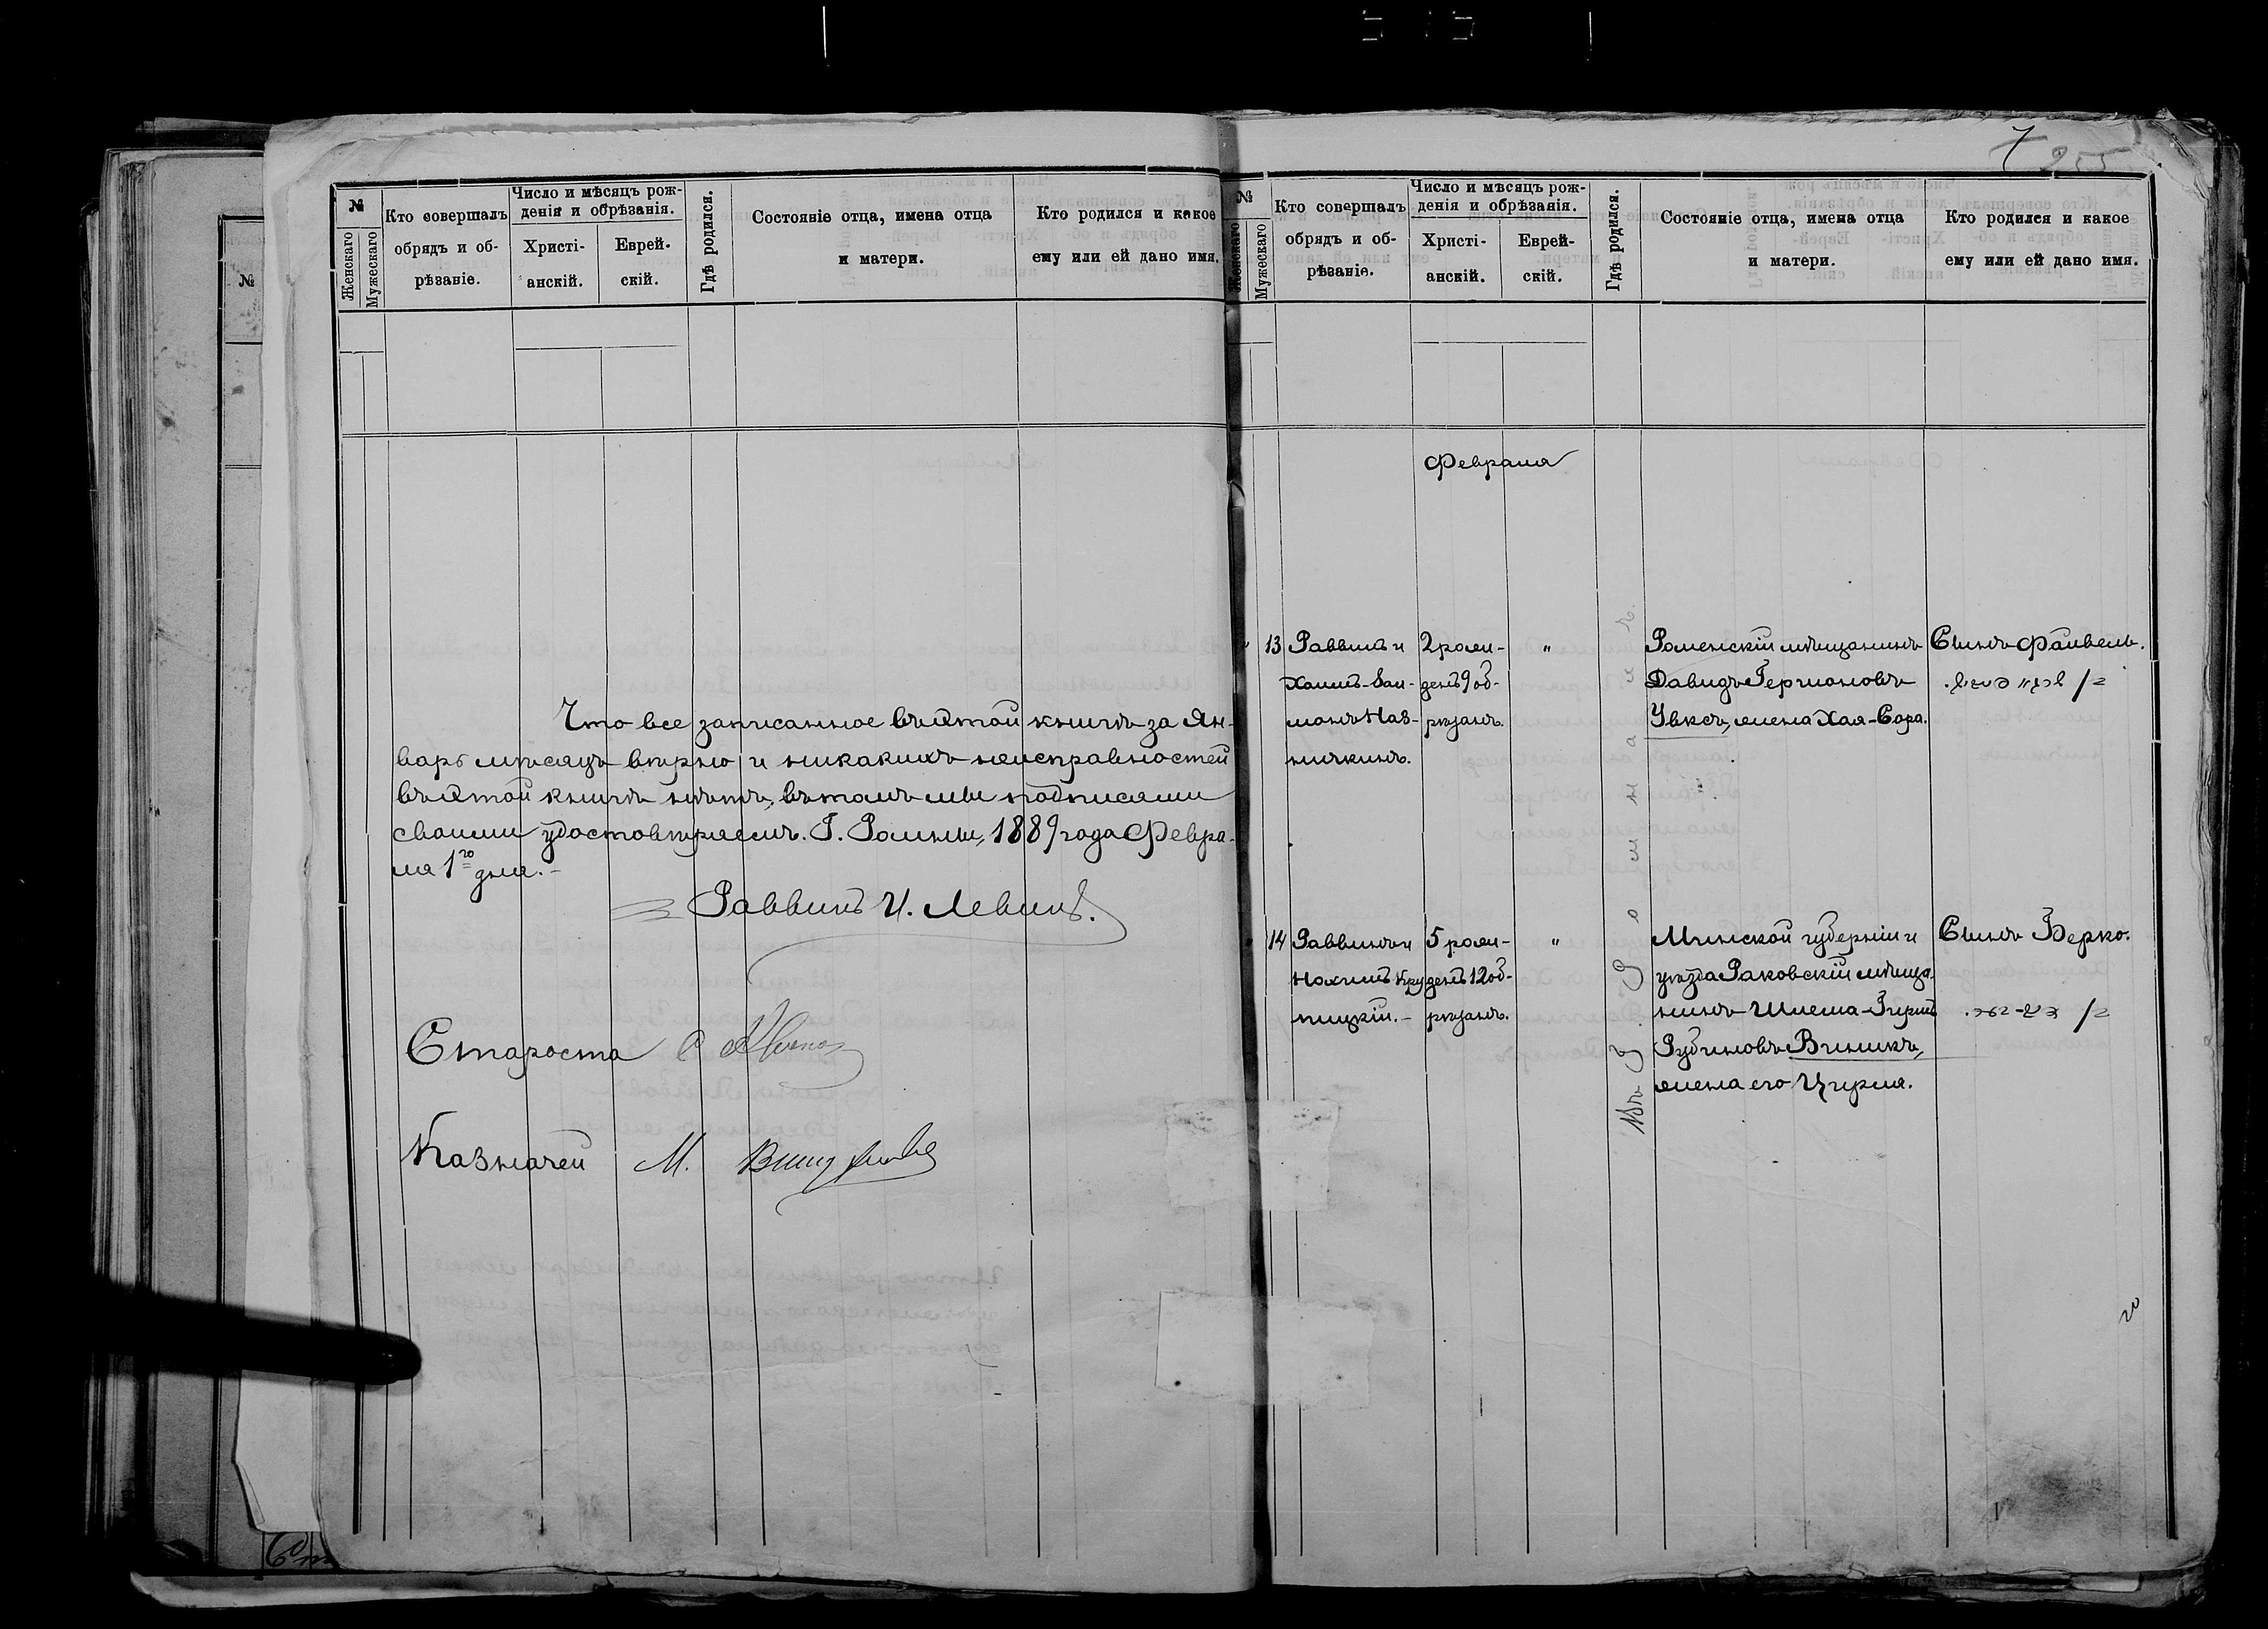 7
255
№
Женскаго
Мужескаго
Кто совершалъ
обрядъ и об-
рѣзаніе.
Число и мѣсяцъ рож-
денія и обрѣзанія.
Христі-
анскій.
Еврей-
скій.
Гдѣ родился.
Состояніе отца, имена отца
и матери.
Кто родился и какое
ему или ей дано имя.
Что все записанное въ этой книгѣ за Ян-
варь мѣсяцъ вѣрно и никакихъ неисправностей
въ этой книгѣ нѣтъ, въ томъ мы подписами
своими удостовѣряемъ. Г. Ромны, 1889 года Февра-
ля 1го дня.
Раввинъ И. Левинъ.
Староста
Казначей М.
№
Женскаго
Мужескаго
Кто совершалъ
обрядъ и об-
рѣзаніе.
Число и мѣсяцъ рож-
денія и обрѣзанія.
Христі-
анскій.
Еврей-
скій.
Гдѣ родился.
Состояніе отца, имена отца
и матери.
Кто родился и какое
ему или ей дано имя.
Февраля
13 Раввинъ и
Хаимъ-Зал-
монъ Нав-
ничкинъ.
2 рож-
денъ 9 об-
рѣзанъ.
"
Роменскій мѣщанинъ
Давидъ Гершоновъ
Увксъ, жена Хая-Сора.
Сынъ Файвель.
14 Раввинъ и
Нохимъ Кру
пицкій.-
5 рож-
денъ 12 об-
рѣзанъ.
"
Въ г. Ромнахъ.
Минской губерніи и
уѣзда Раковскій мѣща
нинъ Шлема-Гиршъ
Рубиновъ Виникъ,
жена его Цирля.
Сынъ Берко.